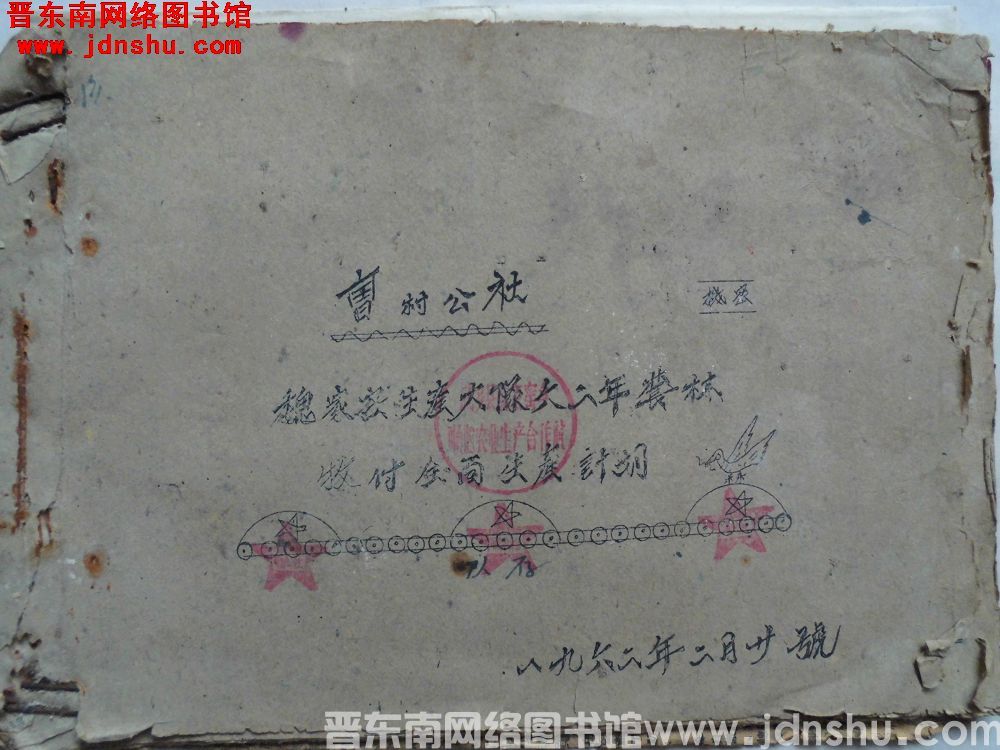 晋东南网络图书馆
www.jdnshu.com
曹村公社
機系
魏家庄生産大隊六二年農林
牧付全面生産計划
农业生产合作社
队存
一九六二年二月廿號
晋东南网络图书馆www.jdnshu.com